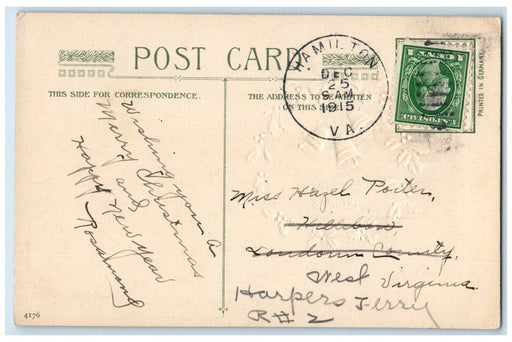 POST CARD
THIS SIDE FOR CORRESPONDENCE.
THE ADDRESS TO BE WRITTEN
ON THIS SIDE
HAMILTON
DEC
25
8 AM
1915
VA.
PRINTED IN GERMANY
Wishing you a
Merry Christmas
and
Happy New Year
Rosamond
Miss Hazel Potter,
Loudoun County,
West Virginia.
Harpers Ferry
R#2
4176